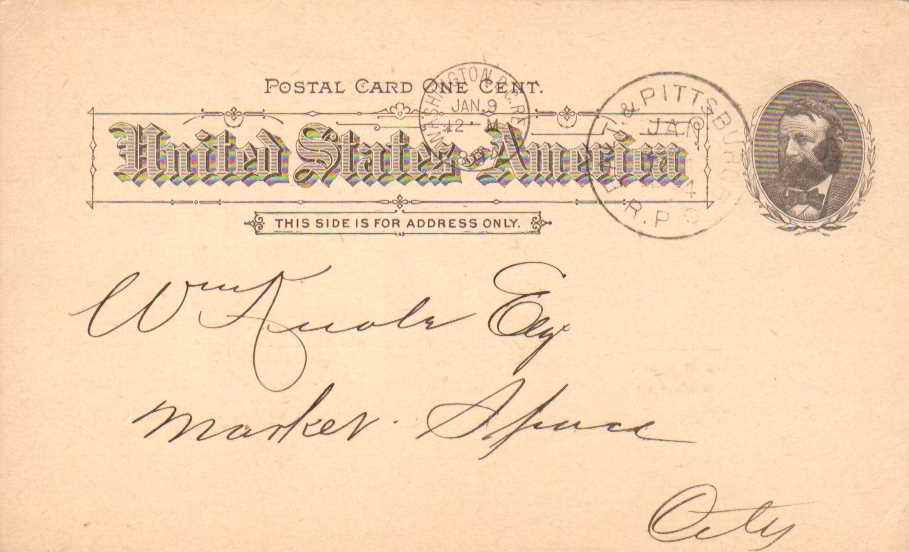 POSTAL CARD ONE CENT.
United States America
THIS SIDE IS FOR ADDRESS ONLY.
WASHINGTON, D.C. REC'D
JAN 9
12 M
& PITTSBURG
JAN
R.P.O.
Wm Knole Esq
Market Space
City